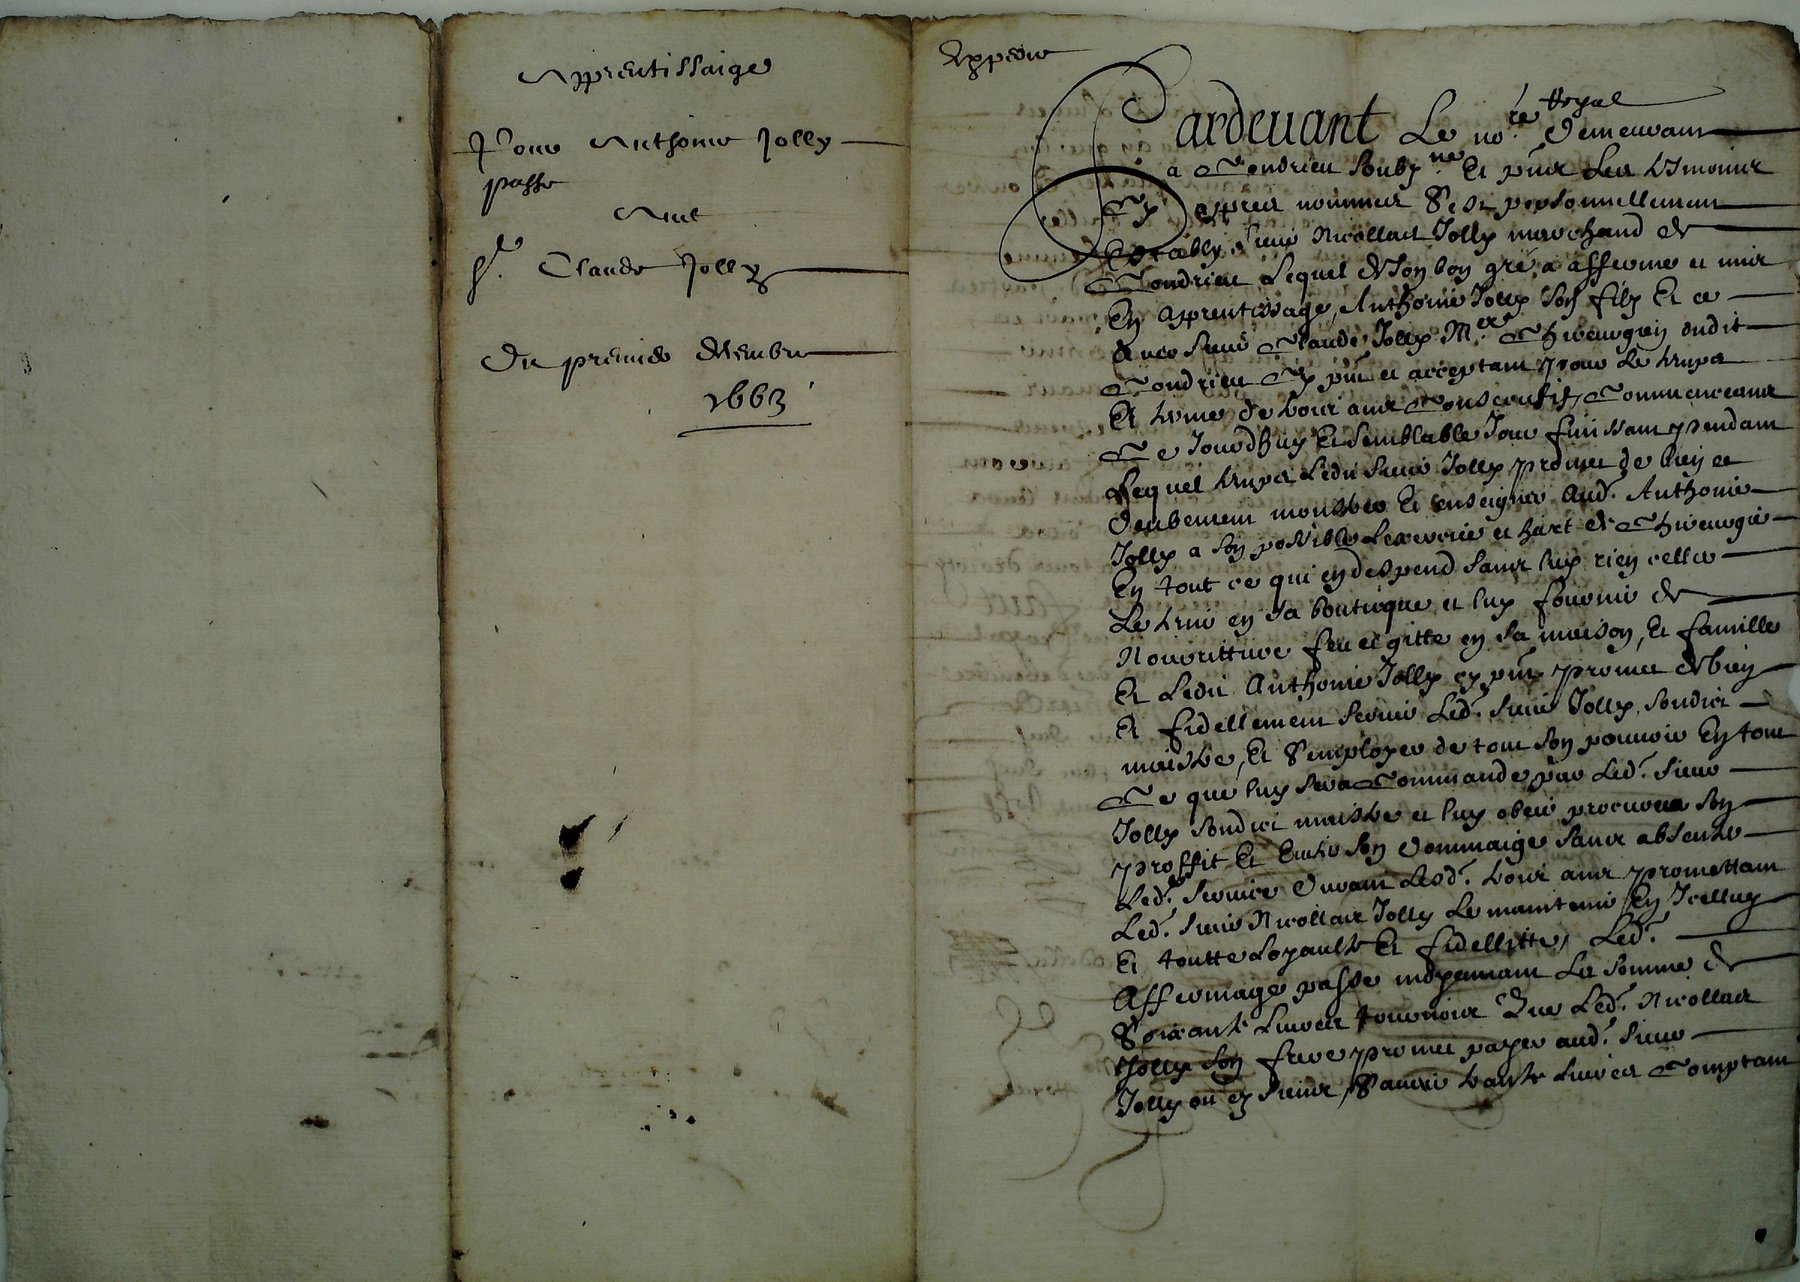 Apprentissaige
Pour Anthoine Jolly
passe
Avec
Sr. Claude Jolly
Du premier decembre
1663
Expedie
Pardevant Le no.re Royal demeurant
a Condrieu soub.ne Et pnt Les tesmoins
Cy appres nommes S'est personnellement
Estably sieur Nicollas Jolly marchand de
Condrieu Lequel de son bon gre, a affermé et mis
En apprentissage, Anthoine Jolly son filz Et ce
Avec sieur Claude Jolly M.re Chirurgien dudit
Condrieu Cy pnt et acceptant pour Le temps
Et terme de trois ans Consecutifz Commenceans
Ce Jourdhuy Et semblable Jour finissant pendant
Lequel temps Ledit sieur Jolly promet de bien et
deubement monstrer Et enseigner Aud. Anthoine
Jolly a son possible Lexercice et hart de Chirurgie
En tout ce qui en despend sans luy rien celler
Le tenir en sa bouticque et luy fournir de
Nourritture feu et gitte en sa maison, Et famille
Et Ledit Anthoine Jolly cy pnt promet de bien
Et fidellement servir Led. sieur Jolly sondict
maistre, Et S'employer de tout son pouvoir En tout
Ce que luy sera Commande par Led. sieur
Jolly sondict maistre et luy obeir procurer son
proffit Et Eviter son dommaige sans absenter
Led. service durant Lesd. trois ans promettant
Led. sieur Nicollas Jolly Le maintenir En Icelluy
Et toutte Loyaulte Et fidellitte, Led.
Affermage passe moyennant La somme de
Soixante Livres tournois Que Led. Nicollas
Jolly son frere promet payer aud. sieur
Jolly ou es siens, Scavoir trante Livres Comptant